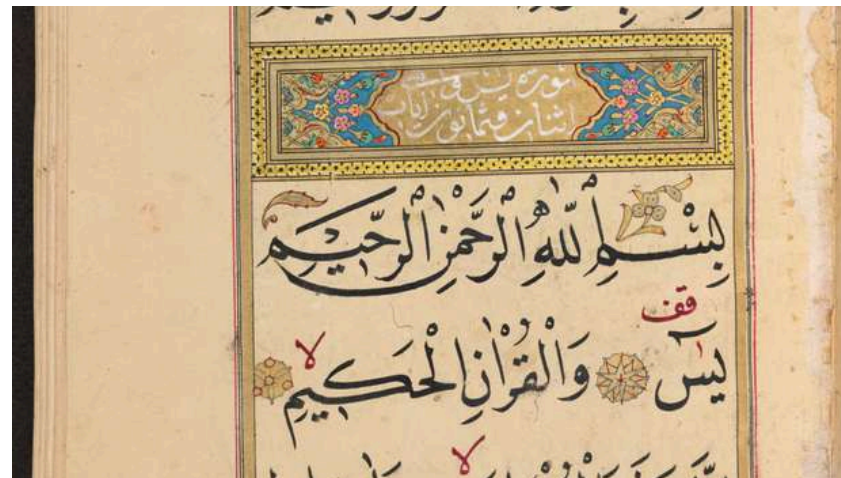 سورة يس وهي
اثنان وثمانون ايات
بِسْمِ اللّٰهِ الرَّحْمٰنِ الرَّحِيْمِ
قف
يٰسٓ وَالْقُرْاٰنِ الْحَكِيْمِ لا
لا